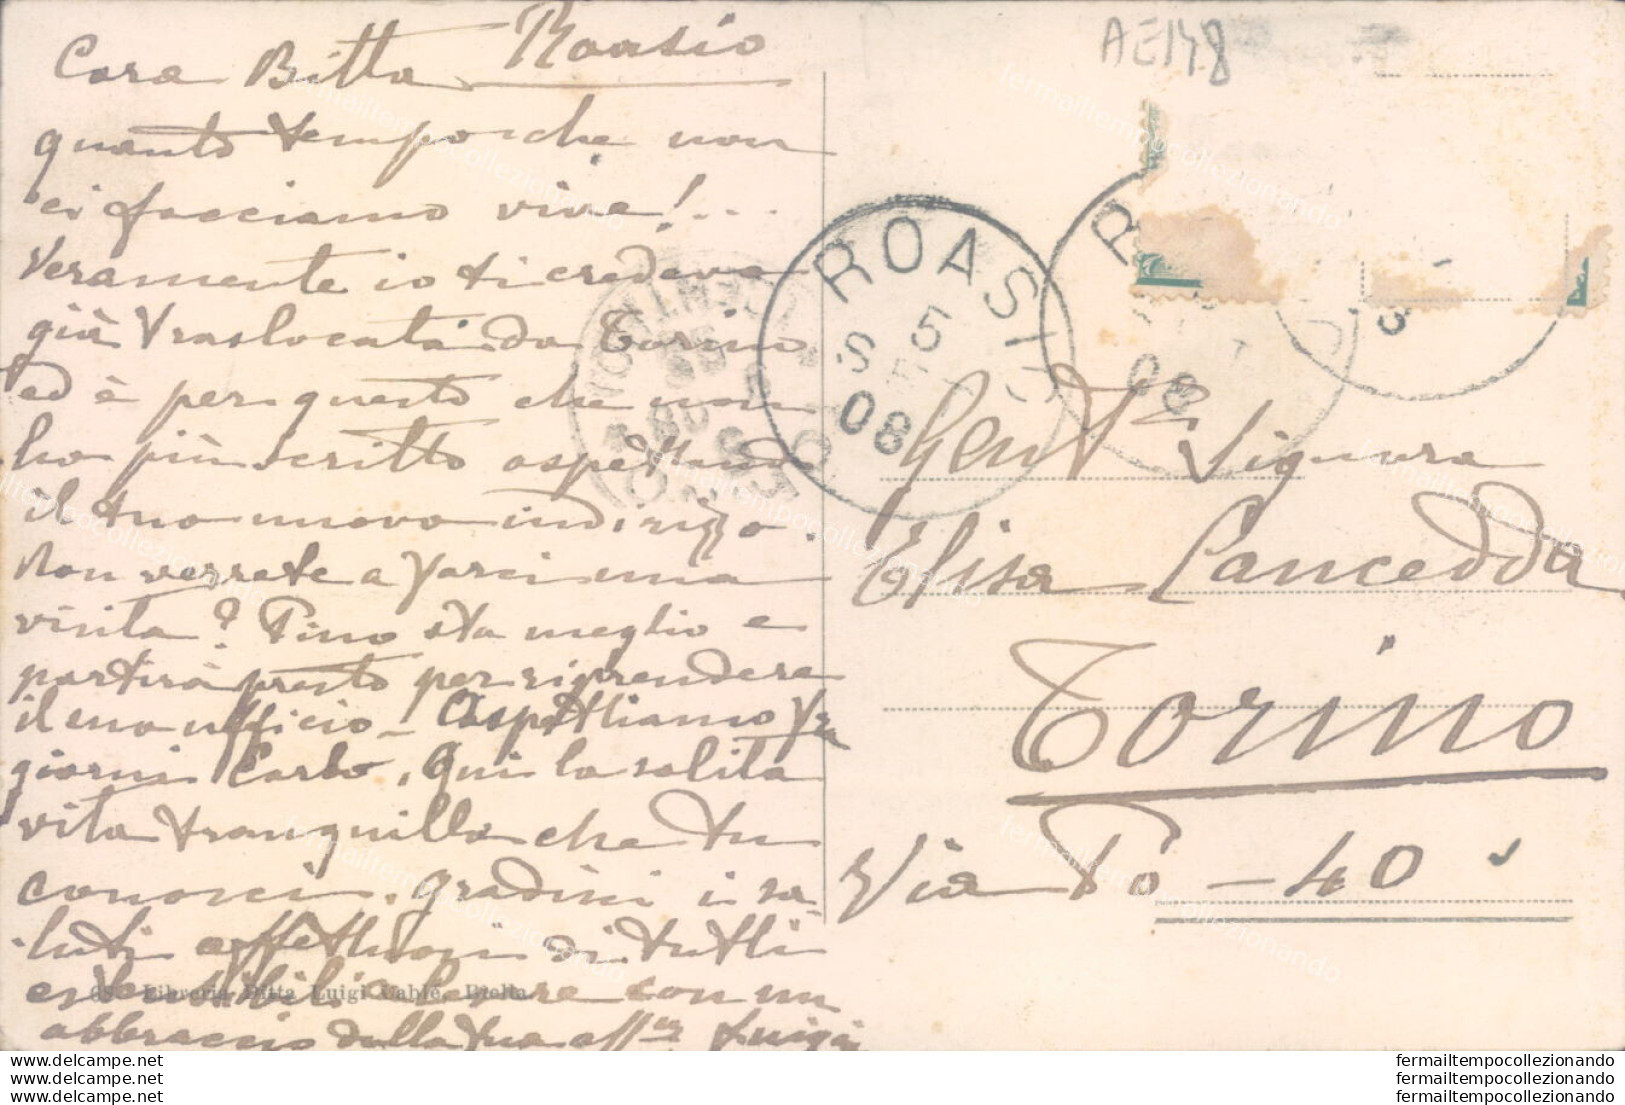 AE148
Roasio
Cara Bitta
quanto tempo che non
ci facciamo vive!...
Veramente io ti credeva
già traslocata da Torino
ed è per questo che non
ho più scritto aspettando
il tuo nuovo indirizzo.
Non verrete a farci una
visita? Pino sta meglio e
partirà presto per riprendere
il suo ufficio - Aspettiamo fra
giorni Carlo. Qui la solita
vita tranquilla che tu
conosci. Gradisci i sa
luti affettuosi di tutti
estensibili a con un
abbraccio dalla tua aff.ma Luigia
68 - Libreria Ditta Luigi Cablè, Biella
ROASIO
5
S
08
08
Gent.ma Signora
Elisa Cancedda
Torino
Via Po - 40
fermailtempocollezionando
fermailtempocollezionando
fermailtempocollezionando
www.delcampe.net
www.delcampe.net
www.delcampe.net